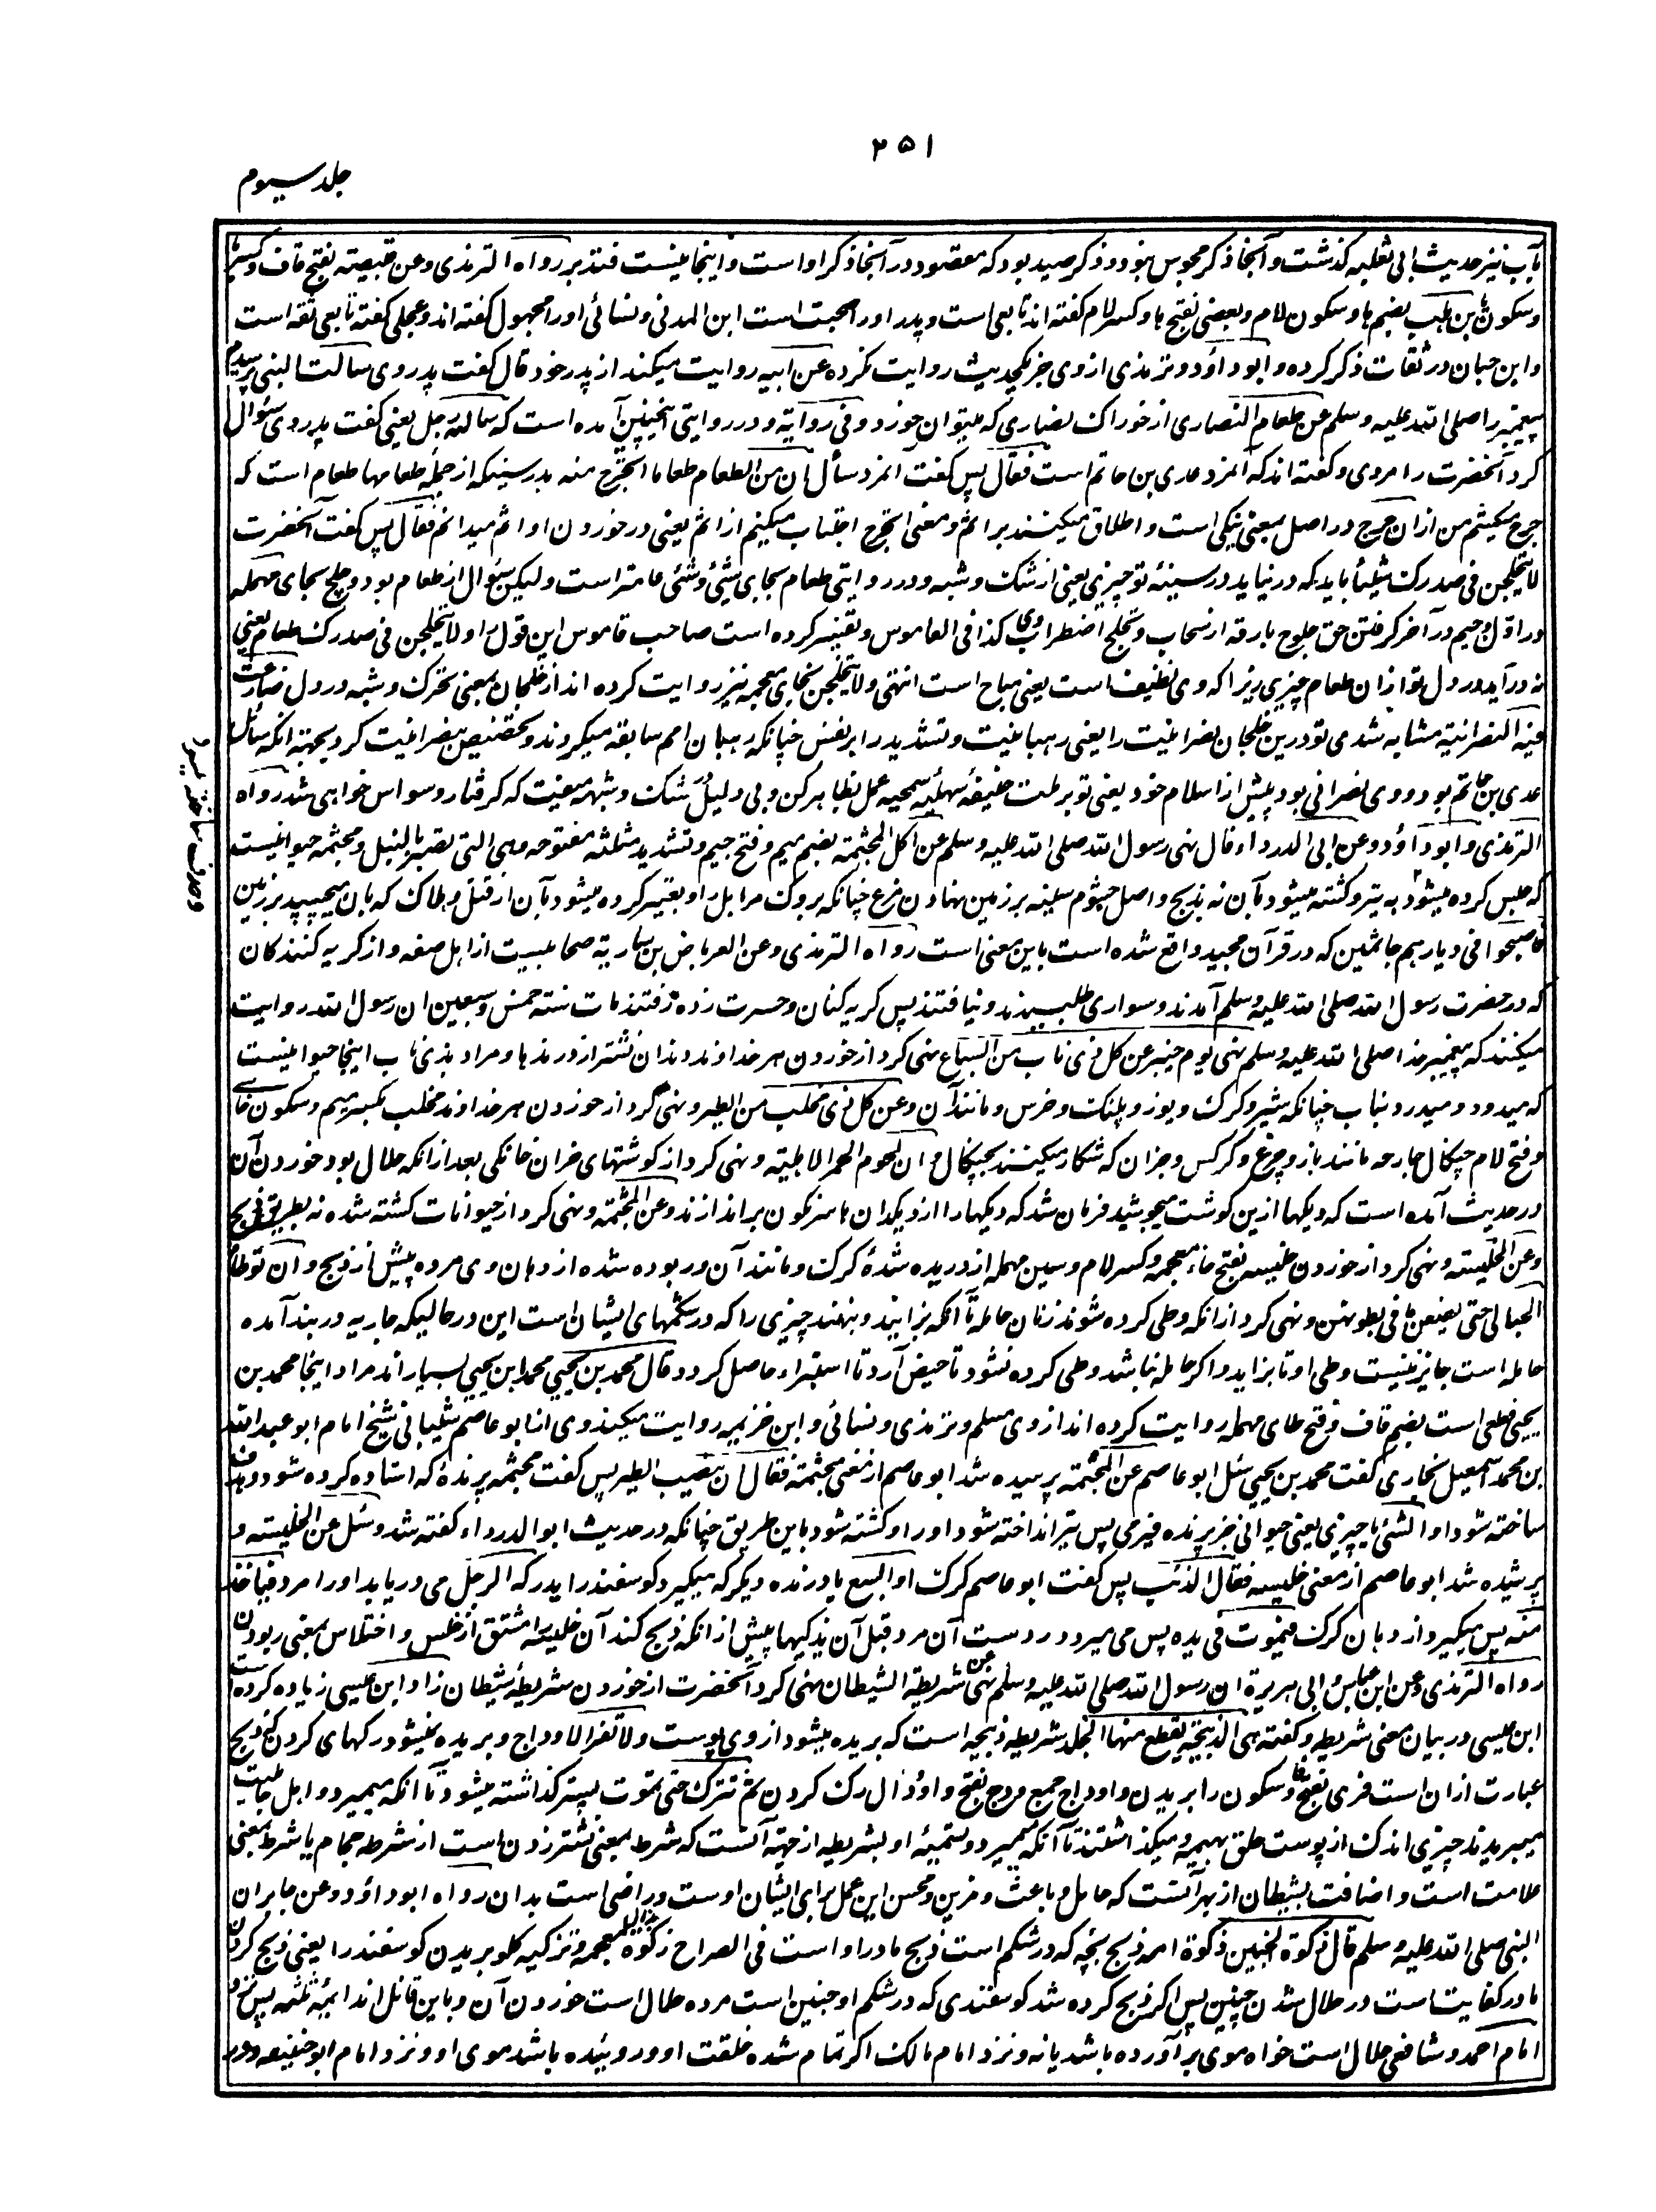 ۲۵۱
جلد سیوم
باب نیز حدیث ابی ثعلبه گذشت و آنجا ذکر مجوس نبود و ذکر صید بود که مقصود در آنجا ذکر او است و اینجا نیست فتدبر رواه الترمذی وعن قبیصة بفتح قاف و کسر با
و سکون یا بن هلب بضم ها و سکون لام و بعضی بفتح ها و کسر لام گفته اند تابعی است و پدر او را صحبت است ابن المدنی و نسائی او را مجهول گفته اند و عجلی گفته تابعی ثقه است
و ابن حبان در ثقات ذکر کرده و ابو داؤد و ترمذی از وی جز یکحدیث روایت نکرده عن ابیه روایت میکند از پدر خود قال گفت پدر وی سالت النبی پرسیدم
پیغمبر را صلی الله علیه و سلم عن طعام النصاری از خوراک نصاری که میتوان خورد و فی روایة و در روایتی اینچنین آمده است که ساله رجل یعنی گفت پدر وی سؤال
کرد آنحضرت را مردی و گفته اند که آنمرد عدی بن حاتم است فقال پس گفت آنمرد سأل ان من الطعام طعاما اتحرج منه بدرستیکه از جمله طعامها طعام است که
حرج میکشم من ازان حرج در اصل بمعنی تنگی است و اطلاق میکنند بر اثم و معنی اتحرج اجتناب میکنم از اثم یعنی در خوردن او اثم میدانم فقال پس گفت آنحضرت
لا یتخلجن فی صدرک شیئا باید که در نیاید در سینهٔ تو چیزی یعنی از شک و شبه و در روایتی طعام بجای شیئ و شئی عامتر است و لیکن سؤال از طعام بود و حلج بحای مهمله
در اول و جیم در آخر گرفتن حق حلوج بارقه از سحاب و تحلج اضطراب وی کذا فی القاموس و تفسیر کرده است صاحب قاموس این قول را و لا یتحلجن فی صدرک طعام یعنی
نه در آید در دل تو ازان طعام چیزی زیرا که وی نظیف است یعنی مباح است انتهی و لا یتخلجن بخای معجمه نیز روایت کرده اند از خلجان بمعنی تحرک و شبه در دل ضارعت
فیه النصرانیة مشابه شدی تو درین خلجان نصرانیت را یعنی رهبانیت و تشدید را بر نفس چنانکه رهبان امم سابقه میکردند و تخصیص بنصرانیت کرد بجهته انکه سائل
عدی بن حاتم بود و وی نصرانی بود پیش از اسلام خود یعنی تو بر ملت حنیفهٔ سهلهٔ سمحیه عمل بظاهر کن و بی دلیل شک و شبهه معیت که گرفتار وسواس خواهی شد رواه
الترمذی و ابو داؤد وعن ابی الدرداء قال نهی رسول الله صلی الله علیه و سلم عن اکل المجثمة بضم میم و فتح جیم و تشدید مثلثه مفتوحه وهی التی تصبر بالنبل و مجثمه حیوانیست
که حبس کرده میشود به تیر و کشته میشود بآن نه بذبح و اصل جثوم سینه بر زمین نهادن مرغ چنانکه بروک مر ابل را و تعبیر کرده میشود بآن از قتل و هلاک که بان میچسپد بر زمین
فاصبحوا فی دیارهم جاثمین که در قرآن مجید واقع شده است باین معنی است رواه الترمذی وعن العرباض بن ساریة صحابیست از اهل صفه و از گریه کنندگان
که در حضرت رسول الله صلی الله علیه و سلم آمدند و سواری طلبیدند و نیافتند پس گریه کنان و حسرت زده رفتند مات سنة خمس و سبعین ان رسول الله روایت
میکنند که پیغمبر خدا صلی الله علیه و سلم نهی یوم خیبر عن کل ذی ناب من السباع نهی کرد از خوردن هر خداوند دندان نشتر از درندها و مراد بذی ناب اینجا حیوانیست
که میدود و میدرد بناب چنانکه شیر و گرگ و یوز و پلنگ و خرس و مانند آن وعن کل ذی مخلب من الطیر و نهی کرد از خوردن هر خداوند مخلب بکسر میم و سکون خای
و فتح لام چنگال جارحه مانند باز و چرغ و کرگس و جزان که شکار میکنند بچنگال وعن لحوم الحمر الاهلیة و نهی کرد از گوشتهای خران خانگی بعد ازانکه حلال بود خوردن آن
در حدیث آمده است که دیگها ازین گوشت میجوشید فرمان شد که دیگها را از دیگدان ها سرنگون بر اندازند وعن المجثمة و نهی کرد از حیوانات کشته شده نه بطریق ذبح
وعن الخلیسة و نهی کرد از خوردن خلیسه بفتح خاء معجمه و کسر لام و سین مهمله از دریده شدهٔ گرگ و مانند آن و ربوده شده از دهان وی مرده پیش از ذبح و ان توطا
الحبالی حتی یضعن ما فی بطونهن و نهی کرد ازانکه وطی کرده شوند زنان حامله تا آنکه بزایند و بنهند چیزی را که در شکمهای ایشان است این در حالیکه جاریه در بند آمده
حامله است جایز نیست وطی او تا بزاید و اگر حامله نباشد وطی کرده نشود تا حیض آرد تا استبراء حاصل گردد قال محمد بن یحیی محمد ابن یحیی بسیار اند مراد اینجا محمد بن
یحیی قطعی است بضم قاف و فتح طای مهمله روایت کرده اند از وی مسلم و ترمذی و نسائی و ابن خزیمه روایت میکند وی از ابو عاصم شیبانی شیخ امام ابو عبد الله
بن محمد اسمعیل بخاری گفت محمد بن یحیی سئل ابو عاصم عن المجثمة پرسیده شد ابو عاصم از معنی مجثمة فقال ان ینصب الطیر پس گفت مجثمه پرندهٔ که استاده کرده شود و هدف
ساخته شود او الشئ یا چیزی یعنی حیوانی جز پرنده فیرمی پس تیر انداخته شود اورا و کشته شود باین طریق چنانکه در حدیث ابو الدرداء گفته شد و سئل عن الخلیسة و
پرسیده شد ابو عاصم از معنی خلیسه فقال الذئب پس گفت ابو عاصم گرگ او السبع یا درنده دیگر که میگیرد گوسفند را یدرکه الرجل می در یابد اورا مرد فیاخذ
منه پس میگیرد از دهان گرگ فیموت فی یده پس می میرد در دست آن مرد قبل آن یذکیها پیش ازانکه ذبح کند آن خلیسه را مشتق از خلس و اختلاس بمعنی ربودن
رواه الترمذی وعن ابن عباس و ابی هریرة ان رسول الله صلی الله علیه و سلم نهی عن شریطة الشیطان نهی کرد آنحضرت از خوردن شریطهٔ شیطان زاد ابن عیسی زیاده کرده است
ابن عیسی در بیان معنی شریطه و گفته هی الذبیحة یقطع منها الجلد شریطه ذبیحه است که بریده میشود از وی پوست و لا تفرا لاوداج و بریده نمیشود رگهای گردن که ذبح
عبارت ازان است فری بفتح فا و سکون را بریدن و اوداج جمع ودج بفتح واؤ دال رگ گردن ثم تترک حتی تموت پستر گذاشته میشود تا انکه بمیرد و اهل جاهلیت
میبریدند چیزی اندک از پوست حلق بهیمه و میگذاشتند تا آنکه بمیرد و تسمیهٔ او بشریطه از جهته آنست که شرط بمعنی نشتر زدن است از شرطه حجام یا شرط بمعنی
علامت است و اضافت بشیطان از بهر آنست که حامل و باعث و مزین و محسن این عمل برای ایشان اوست و راضی است بدان رواه ابو داؤد وعن جابر ان
النبی صلی الله علیه و سلم قال ذکوة الجنین ذکوة امه ذبح بچه که در شکم است ذبح مادر او است فی الصراح ذکوة بذال معجمه و تزکیه گلو بریدن گوسفند را یعنی ذبح کردن
مادر کفایت است در حلال شدن جنین پس اگر ذبح کرده شد گوسفندی که در شکم او جنین است مرده حلال است خوردن آن و باین قائل اند ائمهٔ ثلثه پس نزد
امام احمد و شافعی حلال است خواه موی برآورده باشد یا نه و نزد امام مالک اگر تمام شده خلقت او و روئیده باشد موی او و نزد امام ابو حنیفه و در